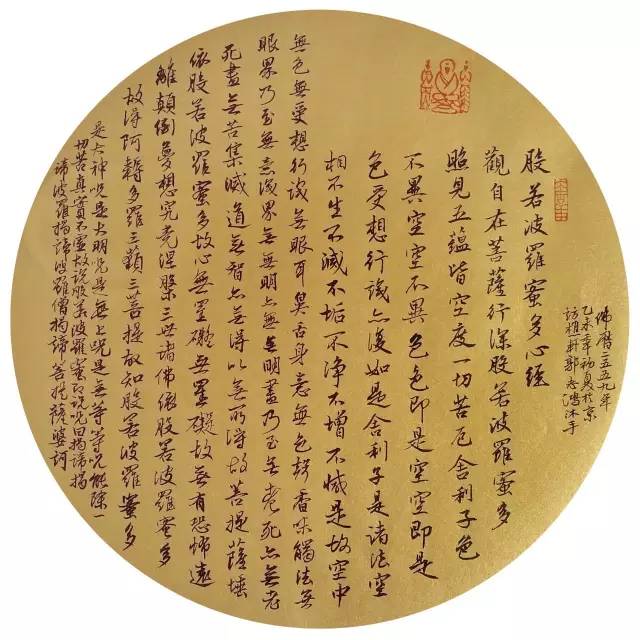 佛曆二五五九年
乙未年初夏於京
軒郭志鴻沐手
般若波羅蜜多心經
觀自在菩薩行深般若波羅蜜多
照見五蘊皆空度一切苦厄舍利子色
不異空空不異色色即是空空即是
色受想行識亦復如是舍利子是諸法空
相不生不滅不垢不淨不增不減是故空中
無色無受想行識無眼耳鼻舌身意無色聲香味觸法無
眼界乃至無意識界無無明亦無無明盡乃至無老死亦無老
死盡無苦集滅道無智亦無得以無所得故菩提薩埵
依般若波羅蜜多故心無罣礙無罣礙故無有恐怖遠
離顛倒夢想究竟涅槃三世諸佛依般若波羅蜜多
故得阿耨多羅三藐三菩提故知般若波羅蜜多
是大神咒是大明咒是無上咒是無等等咒能除一
切苦真實不虛故說般若波羅蜜多咒即說咒曰揭諦揭
諦波羅揭諦波羅僧揭諦菩提薩婆訶